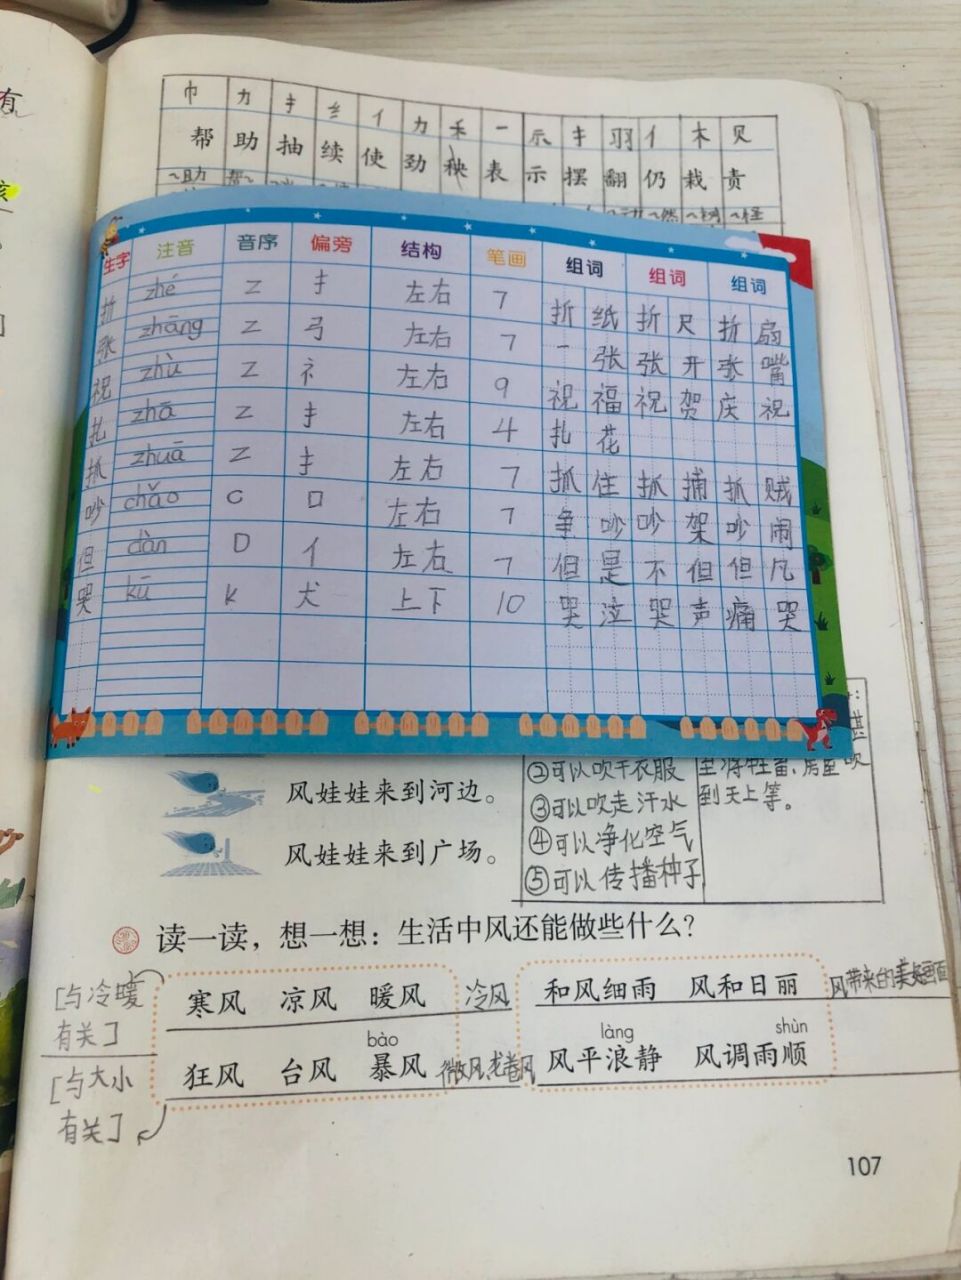 有
巾 力 扌 纟 亻 力 禾 一 示 扌 羽 亻 木 贝
帮 助 抽 续 使 劲 秧 表 示 摆 翻 仍 栽 责
~助 帮~ ~动 ~然 ~树 ~怪
生字 注音 音序 偏旁 结构 笔画 组词 组词 组词
折 zhé Z 扌 左右 7 折纸 折尺 折扇
张 zhāng Z 弓 左右 7 一张 张开 张嘴
祝 zhù Z 礻 左右 9 祝福 祝贺 庆祝
扎 zhā Z 扌 左右 4 扎花
抓 zhuā Z 扌 左右 7 抓住 抓捕 抓贼
吵 chǎo C 口 左右 7 争吵 吵架 吵闹
但 dàn D 亻 左右 7 但是 不但 但凡
哭 kū K 犬 上下 10 哭泣 哭声 痛哭
②可以吹干衣服
③可以吹走汗水
④可以净化空气
⑤可以传播种子
至将牲畜、房屋吹
到天上等。
风娃娃来到河边。
风娃娃来到广场。
读一读，想一想：生活中风还能做些什么？
[与冷暖有关]
寒风 凉风 暖风 冷风
和风细雨 风和日丽 风带来的美好画面
[与大小有关]
bào
狂风 台风 暴风 微风、龙卷风
làng shùn
风平浪静 风调雨顺
107